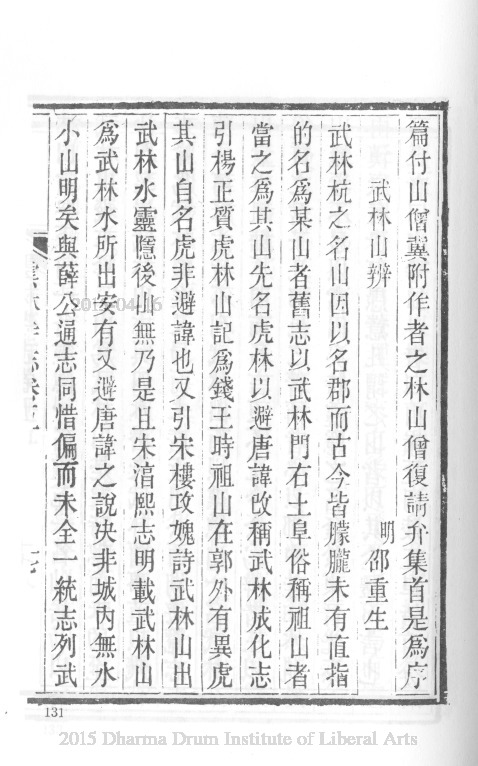 篇付山僧冀附作者之林山僧復請弁集首是爲序
武林山辨
明 邵重生
武林杭之名山因以名郡而古今皆朦朧未有直指
的名爲某山者舊志以武林門右土阜俗稱祖山者
當之爲其山先名虎林以避唐諱改稱武林成化志
引楊正質虎林山記爲錢王時祖山在郭外有異虎
其山自名虎非避諱也又引宋樓攻媿詩武林山出
武林水靈隱後山無乃是且宋淳熙志明載武林山
爲武林水所出安有又避唐諱之說决非城內無水
小山明矣與薛公通志同惜偏而未全一統志列武
志卷五
2015/04/16
131
2015 Dharma Drum Institute of Liberal Arts